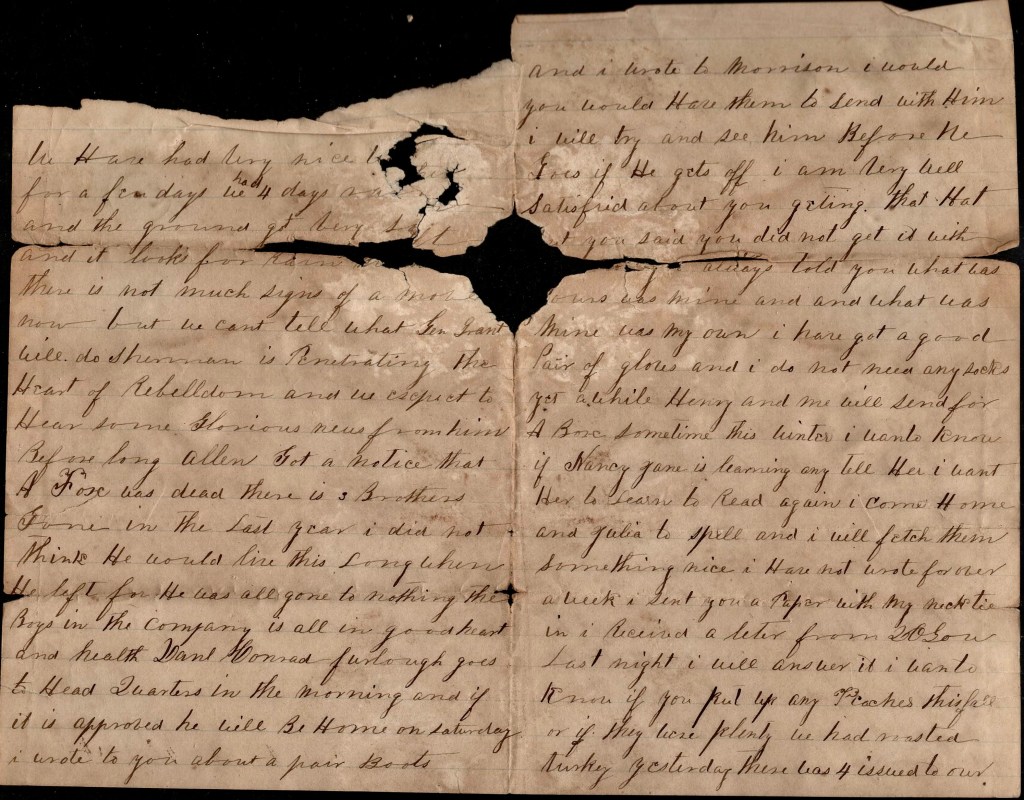 We Have had very nice
for a few days we had 4 days
and the ground got very soft
and it looks for Rain
there is not much signs of a move
now but we cant tell what Gen Grant
will do Sherman is Penetrating the
Heart of Rebelldom and we exspect to
Hear some Glorious news from him
Before long Allen Got a notice that
A Fox was dead there is 3 Brothers
Gone in the Last year i did not
think He would live this Long when
He left for He was all gone to nothing the
Boys in the company is all in good heart
and health Danl Conrad furlough goes
to Head Quarters in the morning and if
it is approved he will Be Home on Saturday
i wrote to you about a pair Boots
and i wrote to Morrison i would
you would Have them to send with Him
i will try and see him Before he
Goes if He gets off i am very well
satisfid about you geting that Hat
you said you did not get it with
always told you what was
yours was mine and and what was
mine was my own i have got a good
Pair of gloves and i do not need any socks
yet awhile Henry and me will send for
A Box sometime this winter i wante know
if Nancy Jane is learning any tell Her i want
Her to Learn to Read again i come Home
and Julia to spell and i will fetch them
something nice i Have not wrote for over
a week i sent you a Paper with my neck tie
in i received a leter from
Last night i will answer it i wante
know if you put up any Peaches this fall
or if they were plenty we had roasted
turkey yesterday there was 4 issued to our